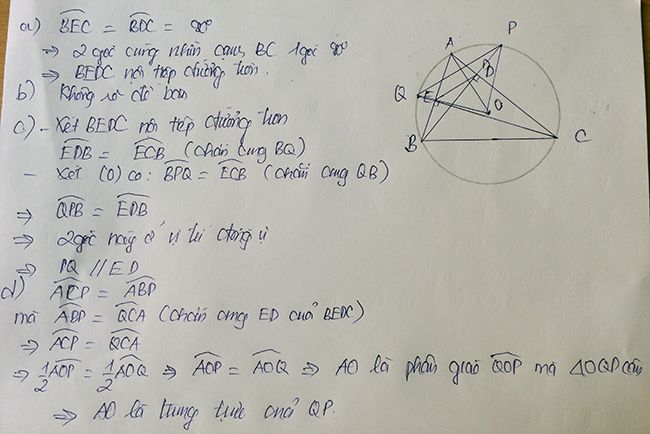 a) BEC = BDC = 90°
⇒ 2 góc cùng nhìn cạnh BC 1 góc 90°
⇒ BEDC nội tiếp đường tròn.
b) Không rõ đề bạn
c) - Xét BEDC nội tiếp đường tròn
EDB = ECB (chắn cung BQ)
- Xét (O) có: BPQ = ECB (chắn cung QB)
⇒ QPB = EDB
⇒ 2 góc này ở vị trí đồng vị
⇒ PQ // ED
d) ACP = ABP
mà ABP = QCA (chắn cung ED của BEDC)
⇒ ACP = QCA
⇒ 1/2 AOP = 1/2 AOQ ⇒ AOP = AOQ ⇒ AO là phân giác QOP mà ΔOQP cân
⇒ AO là trung trực của QP.
P
A
D
Q
E
O
B
C